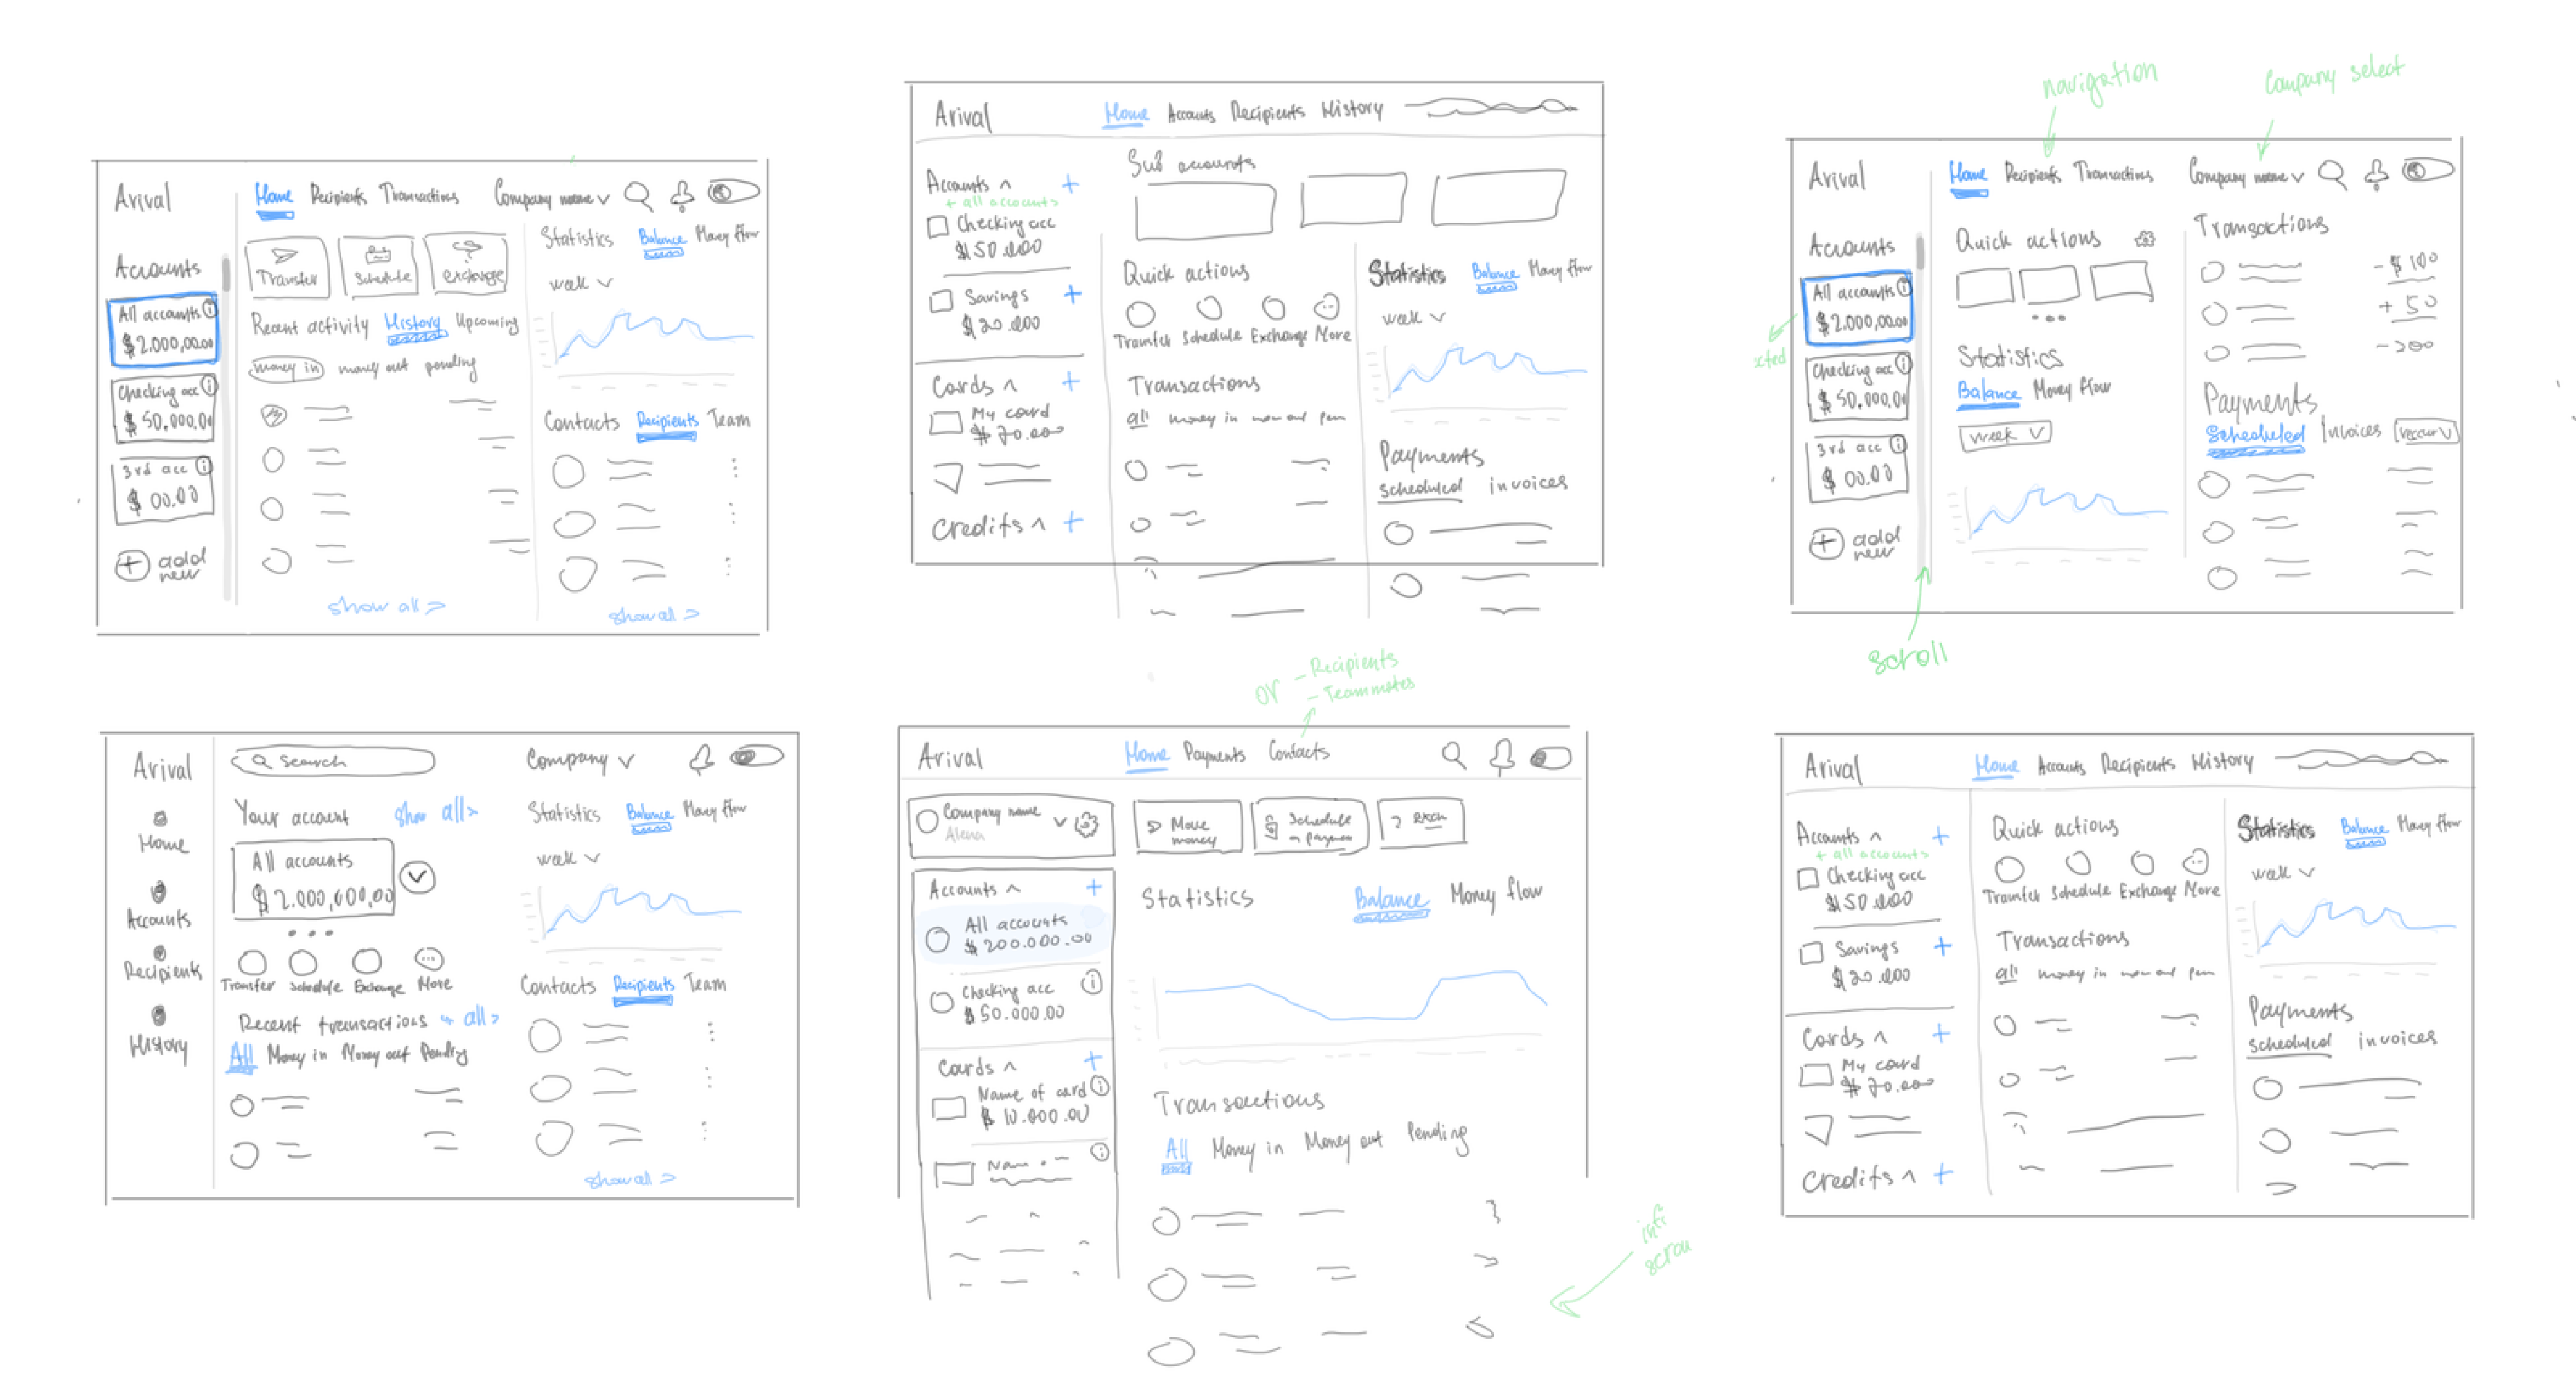 Arival
Home Recipients Transactions Company name
Accounts
All accounts
$2.000,00.00
Checking acc
$50.000.00
3rd acc
$00.00
add
new
Transfer
Schedule
exchange
Recent activity History Upcoming
money in money out pending
show all >
Statistics Balance Money flow
week
Contacts Recipients Team
show all >
Arival
Home Accounts Recipients History
Accounts +
+ all accounts
Checking acc
$150.000
Savings +
$20.000
Cards +
My card
$70.000
Credits +
Sub accounts
Quick actions
Transfer Schedule Exchange More
Transactions
all money in
Statistics Balance Money flow
week
Payments
scheduled invoices
navigation
Company select
Arival
Home Recipients Transactions Company name
Accounts
All accounts
$2.000,00.00
Checking acc
$50.000.00
3rd acc
$00.00
add
new
scroll
Quick actions
Statistics
Balance Money flow
week
Transactions
-$100
+50
-200
Payments
Scheduled Invoices
Arival
Home
Accounts
Recipients
History
Search
Company
Your account show all >
All accounts
$2.000,000.00
Transfer Schedule Exchange More
Recent transactions all >
All Money in Money out Pending
Statistics Balance Money flow
week
Contacts Recipients Team
show all >
or - Recipients
- Teammates
Arival
Home Payments Contacts
Company name
Alena
Move
money
Schedule
a payment
exch
Accounts +
All accounts
$200.000.00
Checking acc
$50.000.00
Cards +
Name of card
$10.000.00
Statistics Balance Money flow
Transactions
All Money in Money out Pending
Arival
Home Accounts Recipients History
Accounts +
+ all accounts
Checking acc
$150.000
Savings +
$20.000
Cards +
My card
$70.000
Credits +
Quick actions
Transfer Schedule Exchange More
Transactions
all money in
Statistics Balance Money flow
week
Payments
scheduled invoices